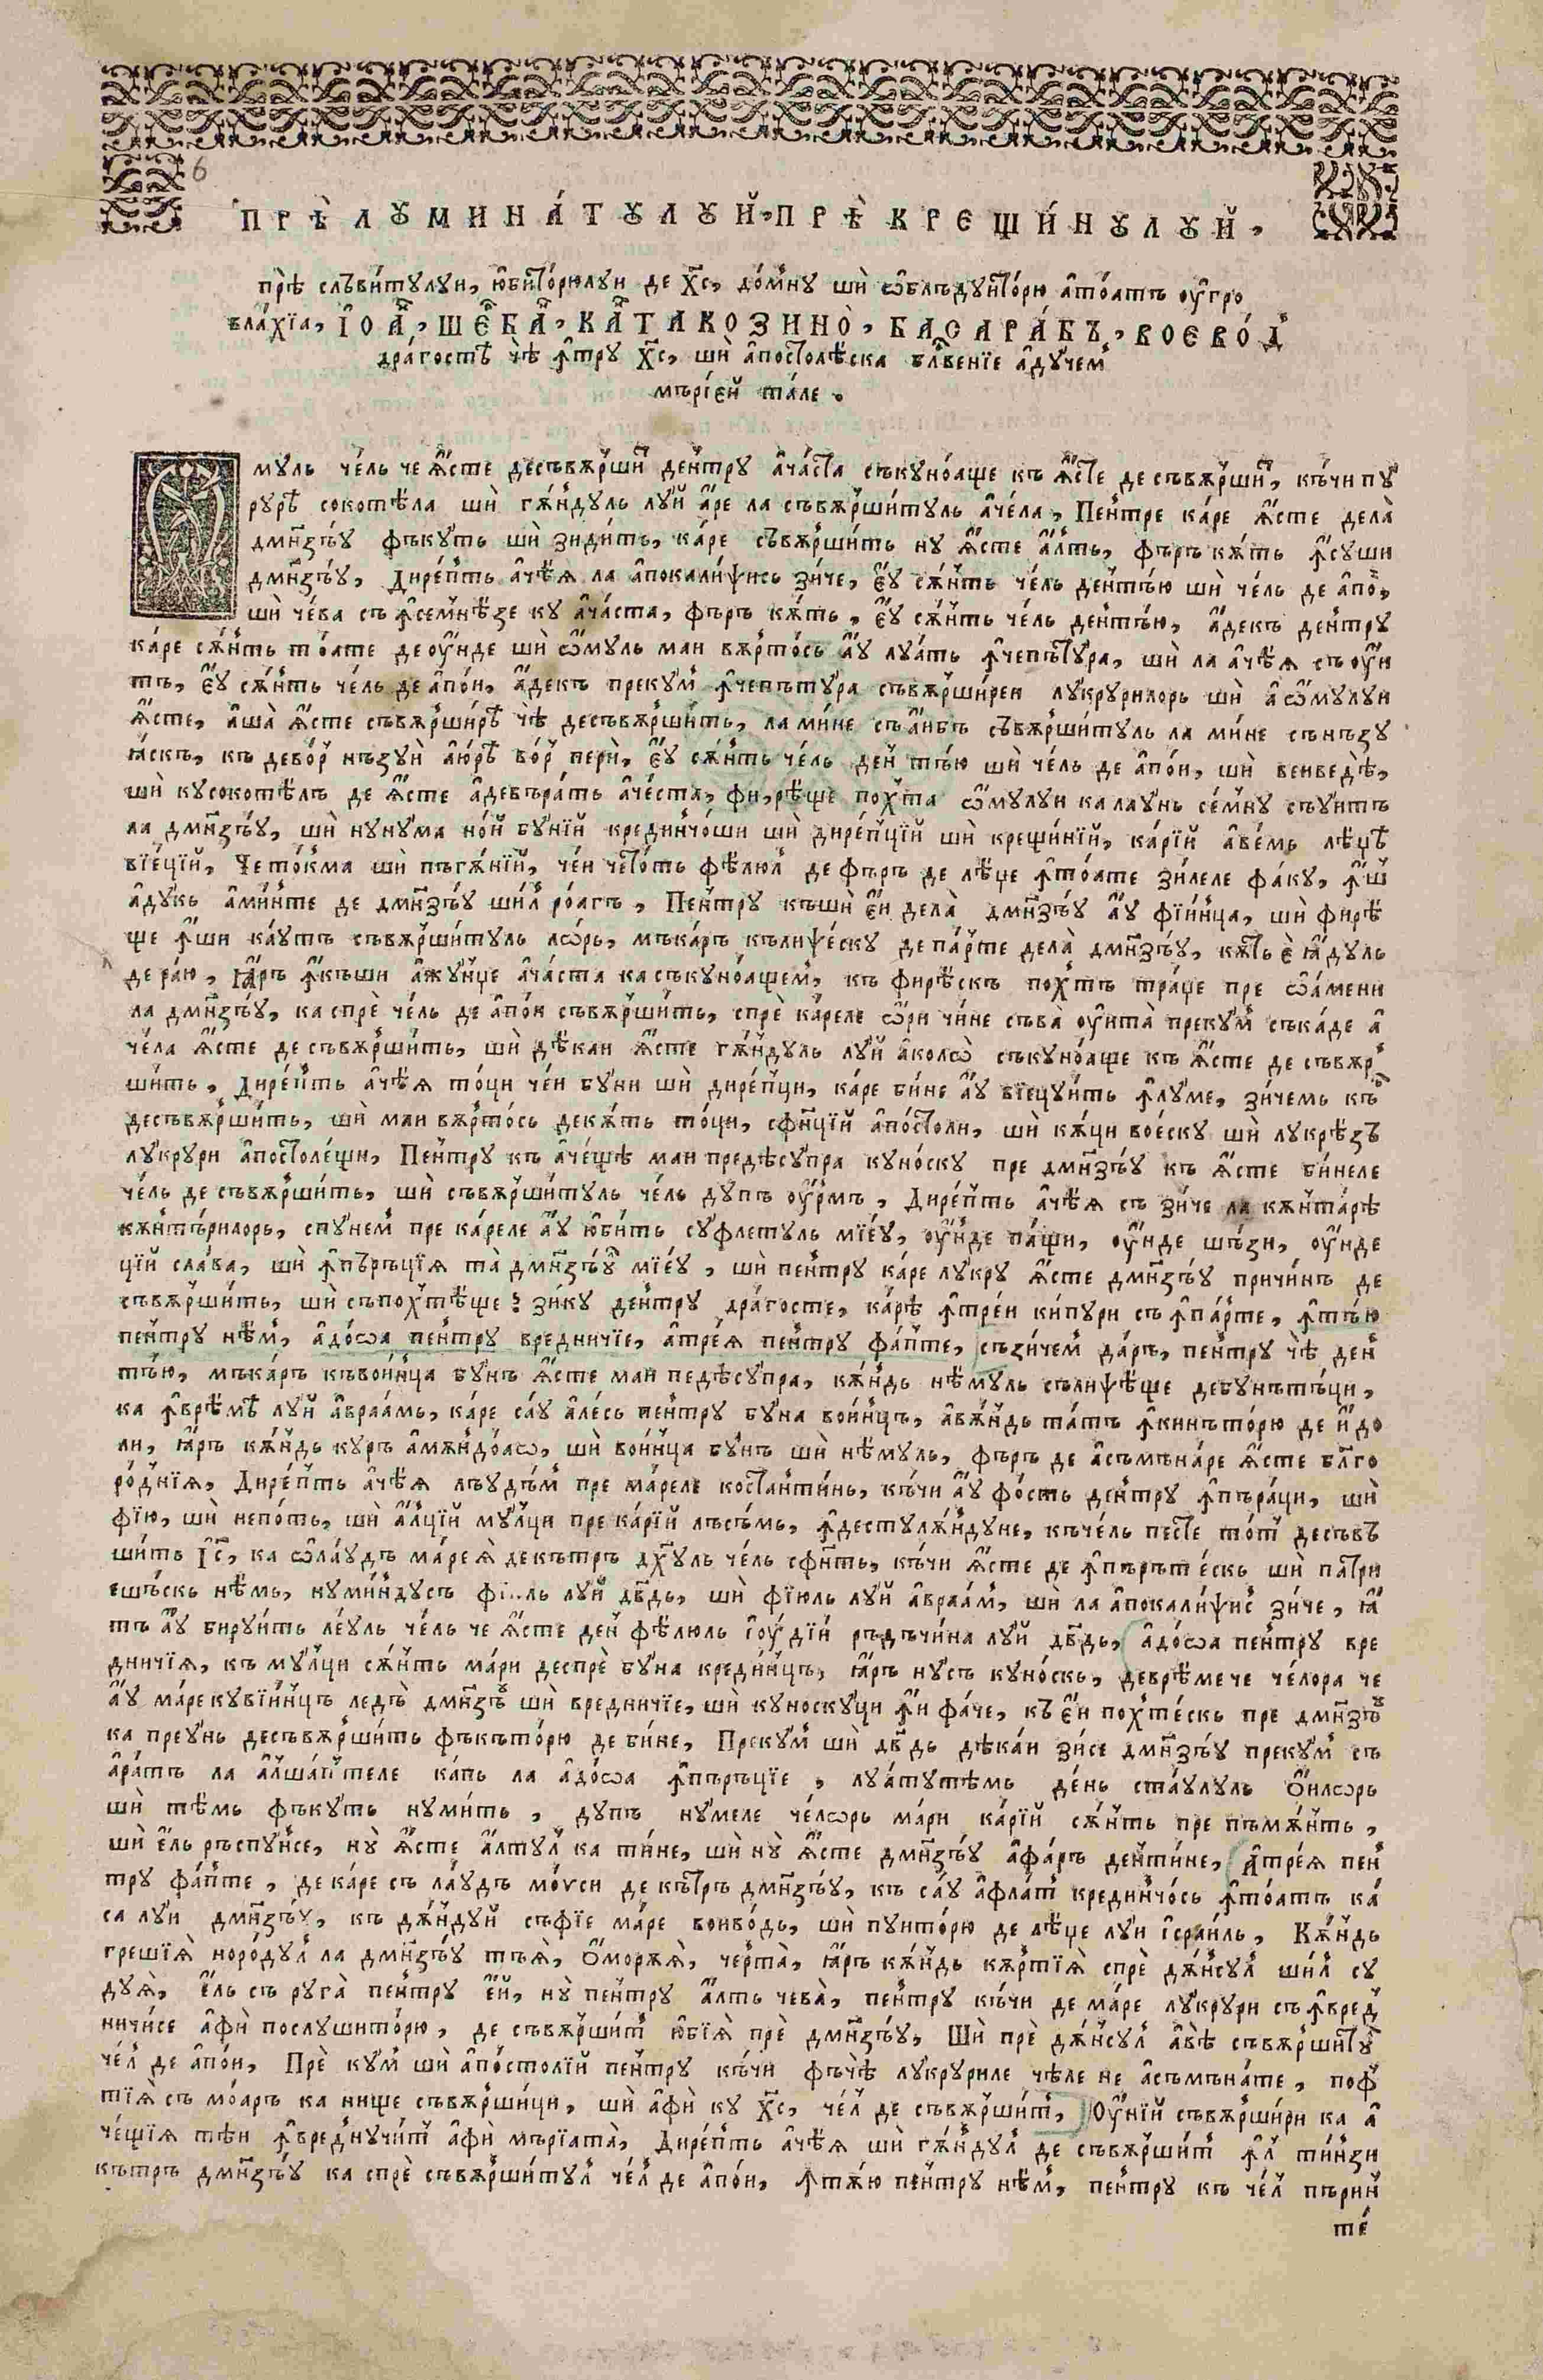 6
ПРѢ ЛꙊМИНА́ТꙊЛꙊЙ, ПРѢ КРЕЩИ́НꙊЛꙊЙ,
прѣ слъви́тꙋлꙋи, ю҆би́то́рюлꙋи де Х҃с, до́мнꙋ шѝ ѡ҆блъдꙋито́рю а҆то́атъ оу҆гро
вла́хїа, І҆ѠА҃Н, ШЕ҆РБА҃Н, КАНТАКОЗИНО̀, БАСАРА́БЪ, ВОЕВО́Д
дра́гостѣ чѣ ꙟ҆трꙋ Х҃с, шѝ а҆постолѣска бл҃гвенїе а҆дꙋ́чем
мърі́ей та́ле.
Ѡ҆мꙋль че́ль че я҆́сте десъвѫрши́т де́нтрꙋ а҆ча́ста съкꙋно́аще къ я҆́сте де съвѫрши́т, къ́чи пꙋ
рꙋрѣ сокотѣ́ла шѝ гѫ́ндꙋль лꙋй а҆́ре ла съвѫрши́тꙋль а҆че́ла, Пе́нтре ка́ре я҆́сте дела̀
дмн҃зъ́ꙋ фъкꙋ́ть шѝ зиди́ть, ка́ре съвѫрши́ть нꙋ я҆́сте а҆́лть, фъръ кѫ́ть ꙟ҆сꙋши
дмн҃зъ́ꙋ, Дире́пть а҆чѣ́я ла а҆покали́ѱись зи́че, є҆́ꙋ сѫ́нть че́ль дентъ́ю шѝ че́ль де а҆по́и,
шѝ че́ва съ ꙟ҆семнѣ́зе кꙋ а҆ча́ста, фъръ кѫ́ть, є҆́ꙋ сѫ́нть че́ль дентъ́ю, а҆́декъ де́нтрꙋ
ка́ре сѫ́нть то́ате деоу҆́нде шѝ ѡ҆́мꙋль маи вѫрто́сь а҆́ꙋ лꙋа́ть ꙟ҆чепъ́тꙋра, шѝ ла а҆чѣ́я съ оу҆́и
тъ, є҆́ꙋ сѫ́нть че́ль де а҆по́и, а҆́декъ прекꙋ́м ꙟ҆чепъ́тꙋра съвѫрши́реи лꙋ́крꙋрилорь шѝ а҆ ѡ҆́мꙋлꙋи
я҆́сте, а҆ша̀ я҆́сте съвѫрши́рѣ чѣ десъвѫрши́ть, ла ми́не съ а҆́ибъ съвѫрши́тꙋль ла ми́не сънъзꙋ
я҆́скъ, къ дево́р нъзꙋѝ а҆ю́рѣ во́р перѝ, є҆́ꙋ сѫ́нть че́ль ден тъ́ю шѝ че́ль де а҆по́и, шѝ венведѣ́,
шѝ кꙋсокотѣ́лъ де я҆́сте а҆девъра́ть а҆че́ста, фи, рѣ́ще похта ѡ҆́мꙋлꙋи ка лаꙋнь се́мнꙋ съꙋитъ
ла дмн҃зъ́ꙋ, шѝ нꙋнꙋма но́й бꙋнїй креди́нчо́ши шѝ дире́пцїй шѝ крещи́нїй, ка́рїй а҆ве́мь лѣ́цѣ
вїе́цїй, Чето́кма шѝ пъгѫ́нїй, че́и чето́ть фѣ́люл де фъръ де лѣ́це ꙟ҆то́ате зи́леле фа́кꙋ, ꙟ҆́ш
а҆дꙋ́кь а҆ми́нте де дмн҃зъ́ꙋ шѝл ро́агъ, Пе́нтрꙋ къшѝ є҆́и дела̀ дмн҃зъ́ꙋ а҆́ꙋ фїи́нца, шѝ фирѣ́
ще ꙟ҆́ши ка́ꙋтъ съвѫрши́тꙋль лѡ́рь, мъка́ръ кълиѱе́скꙋ де па́рте дела̀ дмн҃зъ́ꙋ, кѫ́ть є҆̀ я҆́дꙋль
де ра́ю, я҆́ръ ꙟ҆́къши а҆жꙋ́нце а҆ча́ста ка съкꙋно́ащем, къ фирѣ́скъ похтъ тра́це пре ѡ҆а́мени
ла дмн҃зъ́ꙋ, ка спрѐ че́ль де а҆по́и съвѫрши́ть, спрѐ ка́реле ѡ҆́ри чи́не съва̀ оу҆ита̀ прекꙋ́м съка́де а҆
че́ла я҆́сте де съвѫрши́ть, шѝ дѣкаи я҆́сте гѫ́ндꙋль лꙋй а҆колѡ̀ съкꙋно́аще къ я҆́сте де съвѫр
ши́ть, Дире́пть а҆чѣ́я то́ци че́и бꙋ́ни шѝ дире́пци, ка́ре би́не а҆́ꙋ вїецꙋи́ть ꙟ҆лꙋ́ме, зи́чемь къ
десъвѫрши́ть, шѝ маи вѫрто́сь декѫ́ть то́ци, сфи́нцїй а҆по́столи, шѝ кѫ́ци вое́скꙋ шѝ лꙋкрѣ́зъ
лꙋ́крꙋри а҆постоле́щи, Пе́нтрꙋ къ а҆че́щѣ маи предѣсꙋ́пра кꙋно́скꙋ пре дмн҃зъ́ꙋ къ я҆́сте би́неле
че́ль де съвѫрши́ть, шѝ съвѫрши́тꙋль че́ль дꙋпъ оу҆́рмъ, Дире́пть а҆чѣ́я съ зи́че ла кѫнта́рѣ
кѫнтъ́рилорь, спꙋ́нем пре ка́реле а҆́ꙋ ю҆би́ть сꙋ́флетꙋль мїе́ꙋ, оу҆́нде па́щи, оу҆́нде шъ́зи, оу҆́нде
цїй сла́ва, шѝ ꙟ҆пъръцїя та̀ дмн҃зъ́ꙋл мїе́ꙋ, шѝ пе́нтрꙋ ка́ре лꙋ́крꙋ я҆́сте дмн҃зъ́ꙋ причи́нъ де
съвѫрши́ть, шѝ съпохтѣ́ще; зи́кꙋ де́нтрꙋ дра́госте, ка́рѣ ꙟ҆тре́и ки́пꙋри съ ꙟ҆па́рте, ꙟ҆тъ́ю
пе́нтрꙋ нѣ́м, а҆до́ѡа пе́нтрꙋ вредничїе, а҆тре́я пе́нтрꙋ фа́пте, съзи́чем да́ръ, пе́нтрꙋ чѣ ден
тъ́ю, мъка́ръ къвои́нца бꙋ́нъ я҆́сте маи педѣсꙋ́пра, кѫ́ндь нѣ́мꙋль сълиѱѣ́ще дебꙋнътъ́ци,
ка ꙟ҆врѣ́мѣ лꙋй а҆враа́мь, ка́ре са́ꙋ а҆ле́сь пе́нтрꙋ бꙋ́на вои́нцъ, а҆вѫ́ндь та́тъ ꙟ҆кинъто́рю де и҆́до
ли, я҆́ръ кѫ́ндь кꙋръ а҆мѫндо́лѡ, шѝ вои́нца бꙋ́нъ шѝ нѣ́мꙋль, фъръ де а҆съмъна́ре я҆́сте бл҃го
ро́днїя, Дире́пть а҆чѣ́я лъꙋдъ́м пре ма́реле костанти́нь, къ́чи а҆́ꙋ фо́сть де́нтрꙋ ꙟ҆пъра́ци, шѝ
фі́ю, шѝ непо́ть, шѝ а҆́лцїй мꙋ́лци пре ка́рїй лъсъ́мь, ꙟ҆дестꙋлѫ́ндꙋне, къче́ль песте то́т десъвъ
ши́ть І҆с҃, ка ѡ҆ла́ꙋдъ ма́реѧ̀ декътръ дх҃ꙋль че́ль сфнть, къ́чи я҆́сте де ꙟ҆пърътѐскь шѝ патри
ешъ́скь нѣ́мь, нꙋми́ндꙋсъ фі ль лꙋй дв҃дь, шѝ фїюль лꙋй а҆враа́м, шѝ ла а҆покали́ѱис зи́че, я҆́
тъ а҆́ꙋ бирꙋи́ть ле́ꙋль че́ль че я҆́сте ден фѣ́люль і҆оу́дїи ръдъчи́на лꙋй дв҃дь, а҆до́ѡа пе́нтрꙋ вре
дничїя, къ мꙋ́лци сѫ́нть ма́ри деспрѐ бꙋ́на креди́нцъ, я҆́ръ нꙋсъ кꙋно́скь, деврѣ́мече че́лора че
а҆́ꙋ ма́рекꙋвїи́нцъ ледъ̀ дмн҃зъ́ꙋ шѝ вредничїе, шѝ кꙋноскꙋ́ци ꙟ҆́и фа́че, къ є҆́и похте́скь пре дмн҃зъ́ꙋ
ка преꙋ́нь десъвѫрши́ть фъкъто́рю де би́не, Прекꙋ́м шѝ дв҃дь дѣка́и зи́се дмн҃зъ́ꙋ прекꙋ́м съ
а҆ра́тъ ла а҆лша́птеле ка́пь ла а҆до́ѡа ꙟ҆пъръцїе, лꙋа́тꙋтѣмь де́нь ста́ꙋлꙋль ѻ҆́илѡрь
шѝ тѣ́мь фъкꙋ́ть нꙋми́ть, дꙋпъ нꙋ́меле че́лѡрь ма́ри ка́рїй сѫ́нть пре пъмѫ́нть,
шѝ є҆́ль ръспꙋ́нсе, нꙋ̀ я҆́сте а҆́лтꙋл ка ти́не, шѝ нꙋ̀ я҆́сте дмн҃зъ́ꙋ а҆фа́ръ денти́не, А҆тре́я пен
трꙋ фа́пте, де ка́ре съ ла́ꙋдъ мо́ѵси де кътръ дмн҃зъ́ꙋ, къ са́ꙋ а҆фла́т креди́нчо́сь ꙟ҆то́атъ ка́
са лꙋи дмн҃зъ́ꙋ, къ дѫ́ндꙋй съфіе ма́ре воиво́дь, шѝ пꙋито́рю де лѣ́це лꙋи і҆сраи́ль, Кѫ́ндь
грешїѧ̀ норо́дꙋл ла дмн҃зъ́ꙋ тъѧ̀, ѻ҆морѫѧ̀, черта̀, я҆́ръ кѫ́ндь кѫртїѧ̀ спрѐ дѫ́нсꙋл шѝл сꙋ
дꙋѧ̀, є҆́ль съ рꙋга̀ пе́нтрꙋ є҆́й, нꙋ̀ пе́нтрꙋ а҆́лть чева̀, пе́нтрꙋ къ́чи де ма́ре лꙋ́крꙋри съ ꙟ҆вред
ничи́се а҆фѝ послꙋшито́рю, де съвѫрши́т ю҆бїѧ̀ прѐ дмн҃зъ́ꙋ, Шѝ прѐ дѫ́нсꙋл а҆вѣ̀ съвѫрши́тꙋл
че́л де а҆по́и, Прѐ кꙋ́м шѝ а҆по́столїй пе́нтрꙋ къ́чи фъчѣ̀ лꙋ́крꙋриле чѣ́ле не а҆съмъна́те, поф
тїѧ̀ съ мо́аръ ка нище съвѫрши́ци, шѝ а҆фѝ кꙋ Х҃с, че́л де съвѫрши́т, Оу҆́нїй съвѫрши́ри ка а҆
че́щїя тъ́и ꙟ҆вреднꙋчи́т а҆фѝ мърїата̀, Дире́пть а҆чѣ́я шѝ гѫ́ндꙋл де съвѫрши́т ꙟ҆л ти́нзи
кътръ дмн҃зъ́ꙋ ка спрѐ съвѫрши́тꙋл че́л де а҆по́и, ꙟ҆тѫ́ю пе́нтрꙋ нѣ́м, пе́нтрꙋ къ че́л пърин
те́